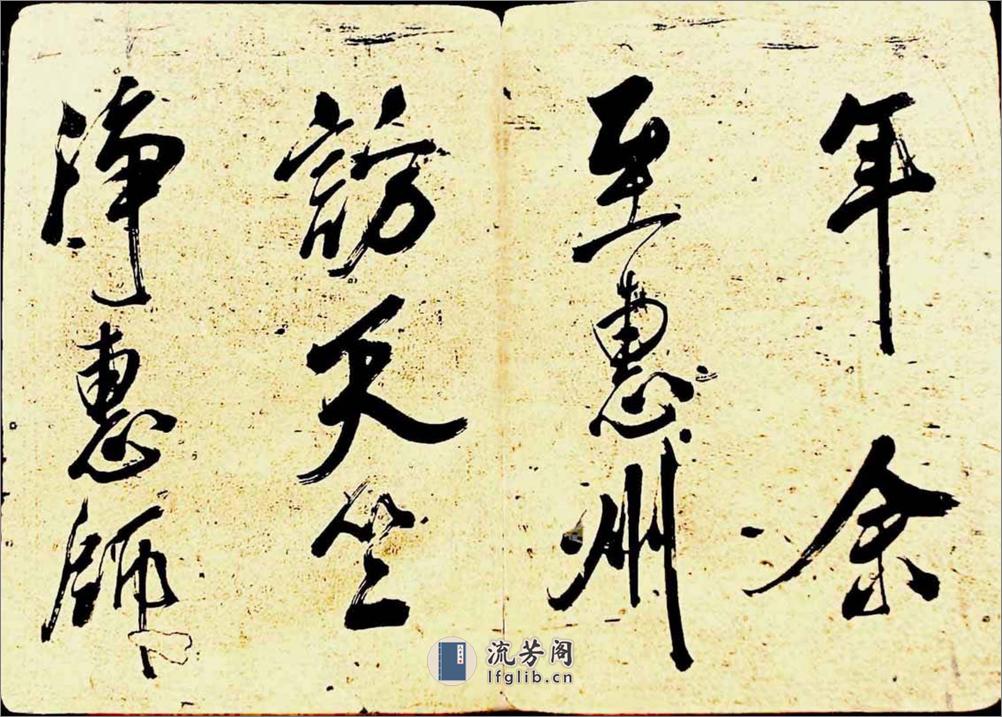 年余
至惠州
訪天竺
淨惠師
流芳阁
lfglib.cn